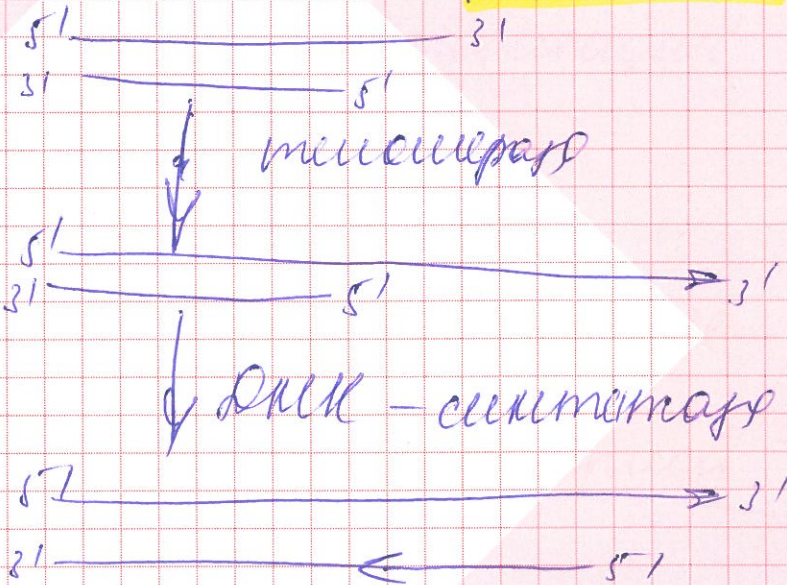 5' 3'
3' 5'
теломераза
5' 3'
3' 5'
ДНК - синтетаза
5' 3'
3' 5'